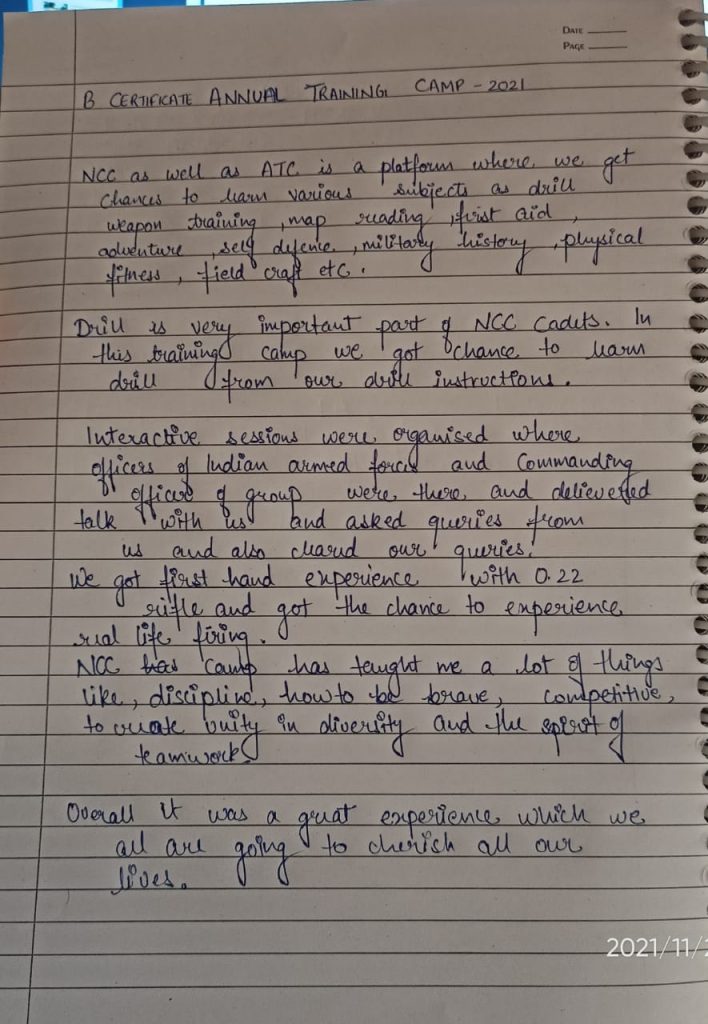 DATE
PAGE
B CERTIFICATE ANNUAL TRAINING CAMP - 2021
NCC as well as ATC is a platform where we get
chances to learn various subjects as drill
weapon training , map reading , first aid ,
adventure , self defence , military history , physical
fitness , field craft etc .
Drill is very important part of NCC Cadets. In
this training camp we got chance to learn
drill from our drill instructions .
Interactive sessions were organised where
officers of Indian armed forces and Commanding
officer of group were there and
talk with us and asked queries from
us and also cleared our queries.
We got first hand experience with 0.22
rifle and got the chance to experience
real life firing .
NCC camp has taught me a lot of things
like , discipline , how to be brave , competitive ,
to create unity in diversity and the spirit of
teamwork.
Overall it was a great experience which we
all are going to cherish all our
lives .
2021/11/2